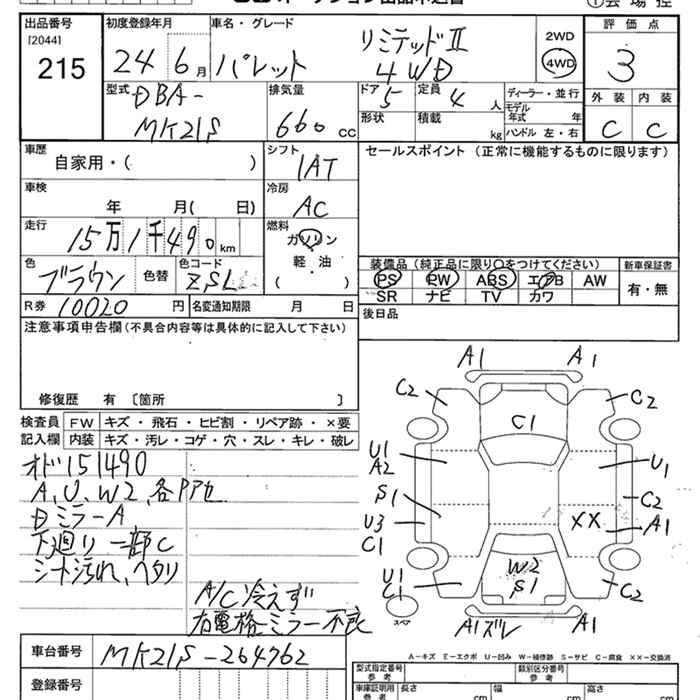 出品番号
[2044]
215
初度登録年月
24年 6月
車名・グレード
パレット リミテッドⅡ 4WD
2WD
4WD
評価点
3
型式
DBA-
MK21S
排気量
660 cc
ドア
5
定員
4 人
形状
積載
kg
ディーラー・並行
モデル年式 年
ハンドル 左・右
外装 内装
C C
車歴
自家用・( )
シフト
IAT
セールスポイント (正常に機能するものに限ります)
車検
年 月( 日)
冷房
AC
走行
15万1千490km
燃料
ガソリン
軽・油
( )
色
ブラウン 色替
色コード
ZSL
装備品(純正品に限り○をつけてください)
PS PW ABS エアB AW
SR ナビ TV カワ
新車保証書
有・無
R券 10020円
名変通知期限 月 日
後日品
注意事項申告欄(不具合内容等は具体的に記入して下さい)
修復歴 有〔箇所 〕
検査員記入欄
FW キズ・飛石・ヒビ割・リペア跡・×要
内装 キズ・汚レ・コゲ・穴・スレ・キレ・破レ
オド151490
A、U、W2、各PP他
Dミラー A
下廻り一部C
シート汚れ、ヘタリ
A/C冷えず
右電格ミラー不良
A1 A1
C2 C2
C1
U1
A2
U1
S1
C2
U3
XX
A1
C1
U1
C1
W2
S1
C2
スペア
A1ズレ A1
A−キズ E−エクボ U−凹み W−補修跡 S−サビ C−腐食 XX−交換済
車台番号 MK21S-264762
登録番号
型式指定番号
参考
類別区分番号
参考
車庫証明用
参考
長さ cm
幅 cm
高さ cm